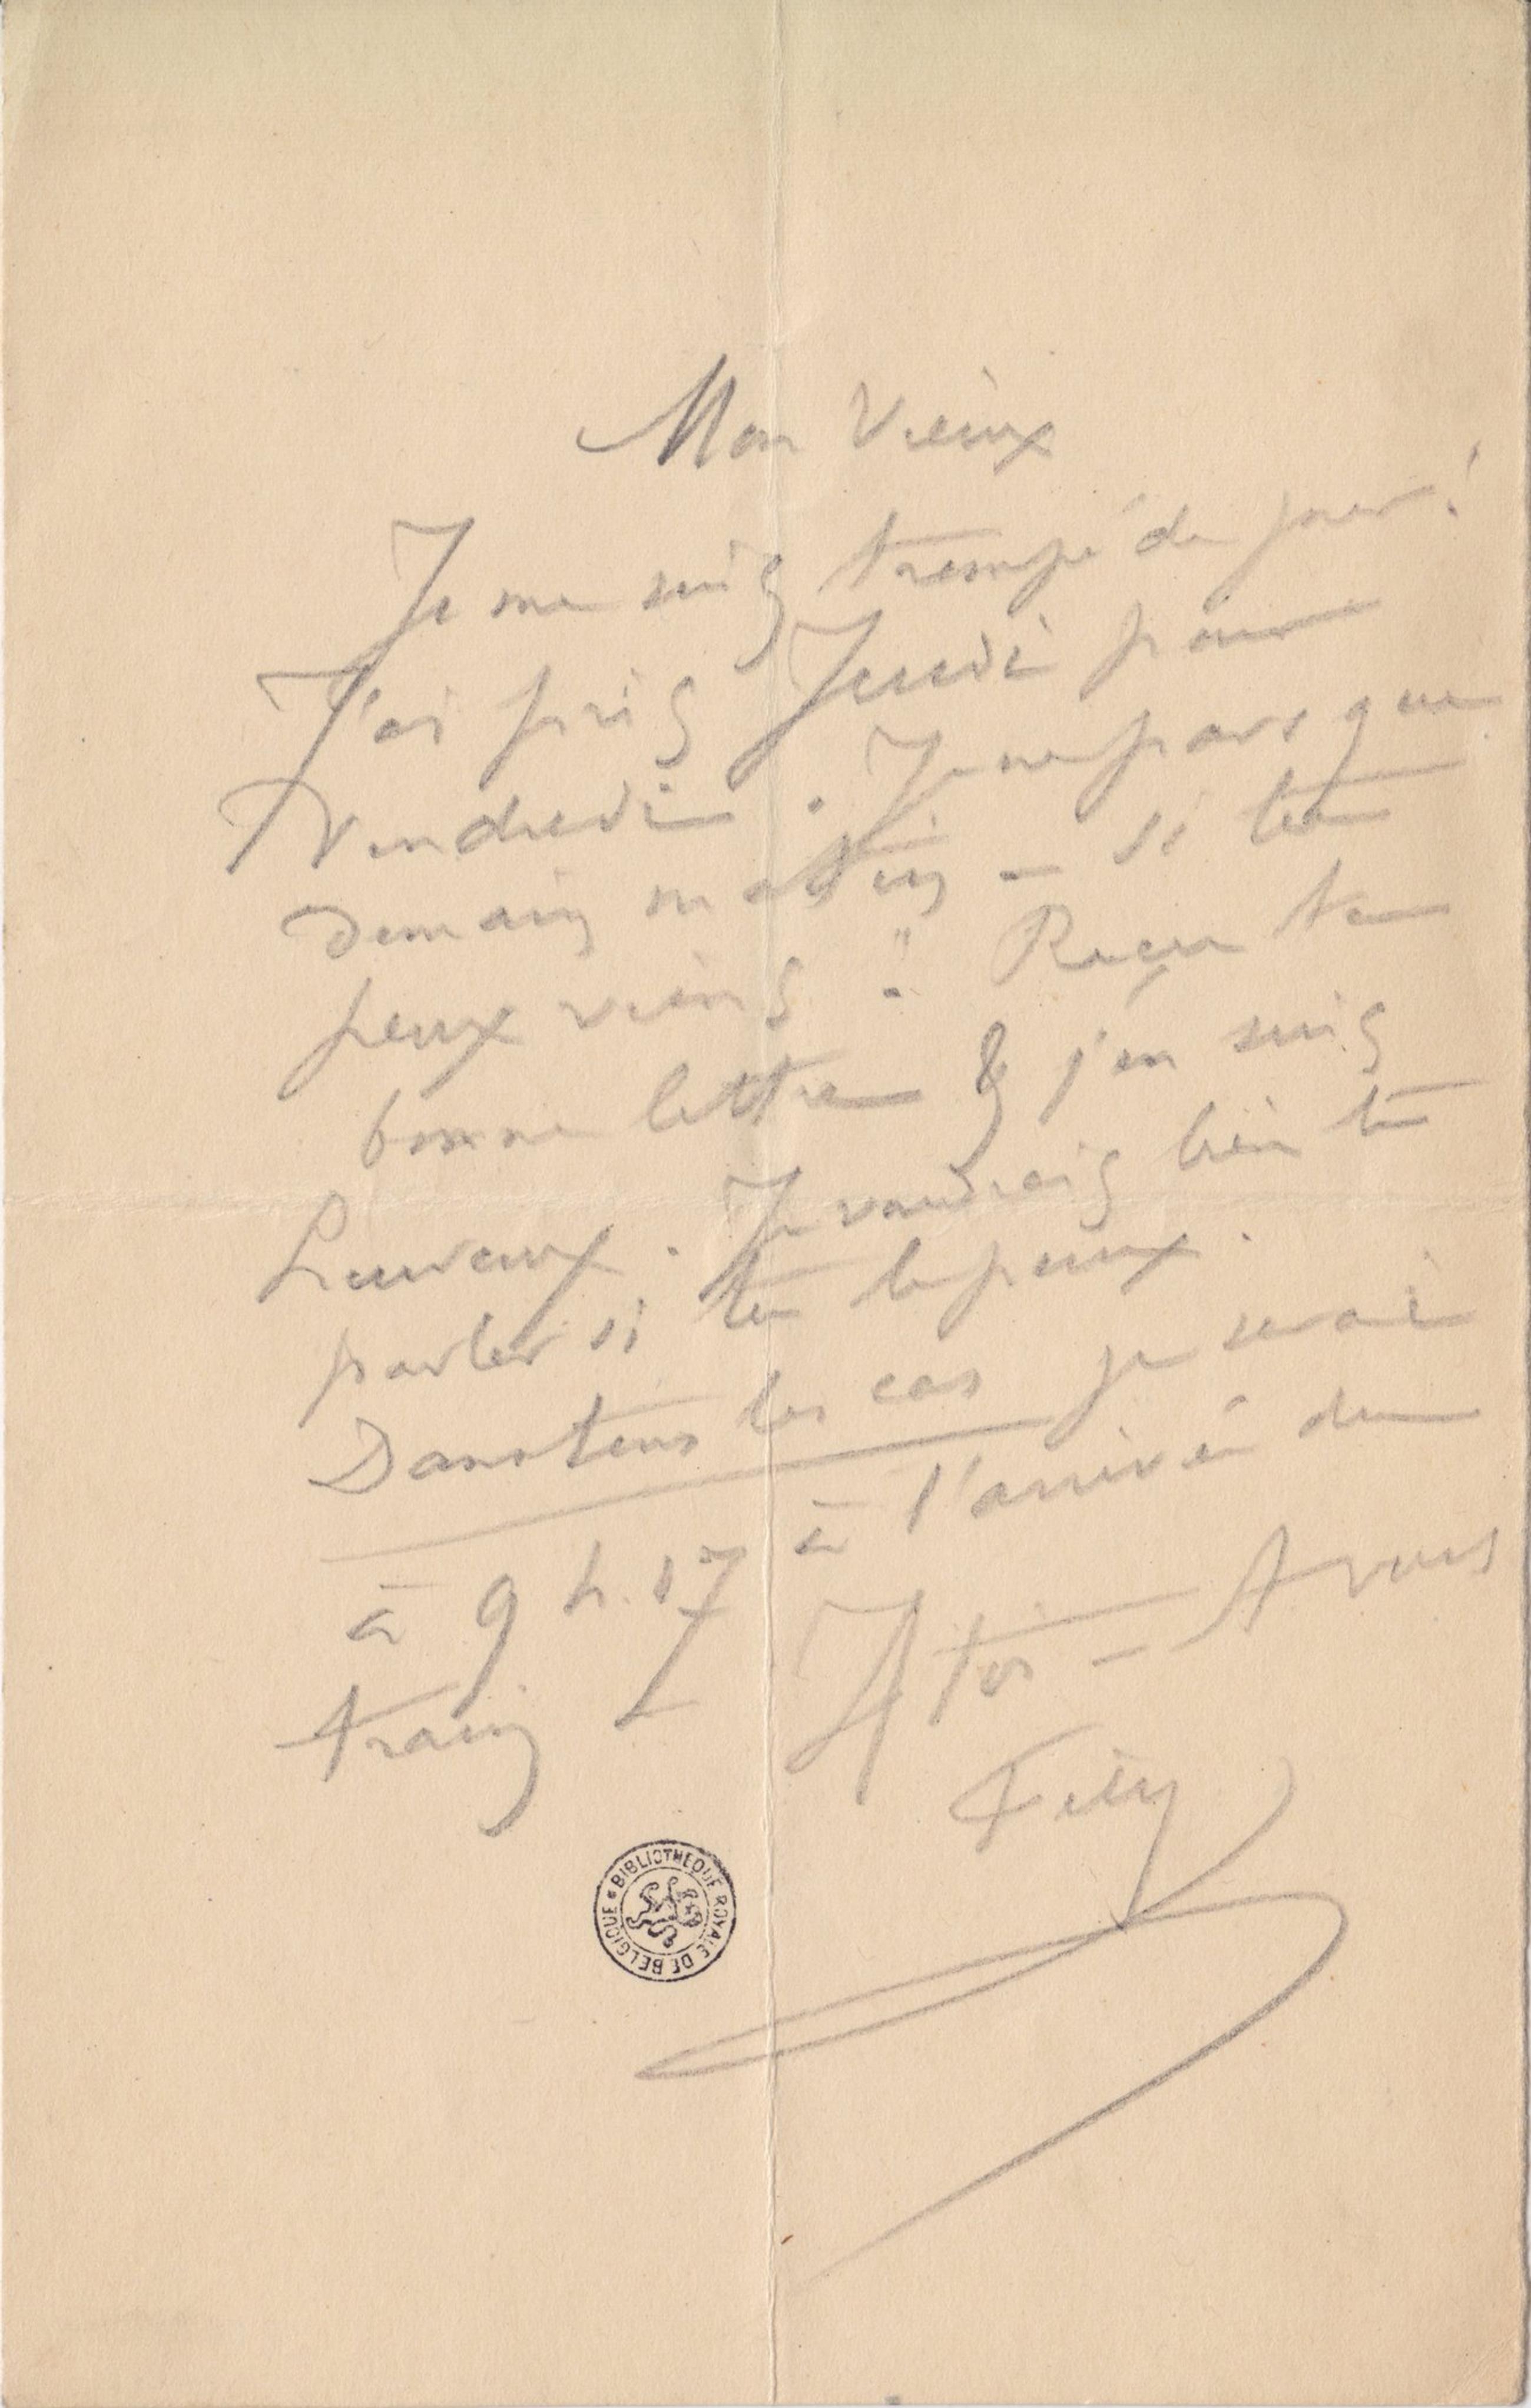 Mon Vieux
Je me suis trempé de jour !
J'ai pris Jeudi pour
Vendredi. Je ne pars que
demain matin — si tu
peux viens ! Reçu ta
bonne lettre & j'en suis
heureux. Je voudrais bien te
parler si tu le peux.
Dans tous les cas je serai
à 9 h. 17 à l'arrivée du
train
A toi — A vous
Fély
BIBLIOTHEQUE ROYALE DE BELGIQUE